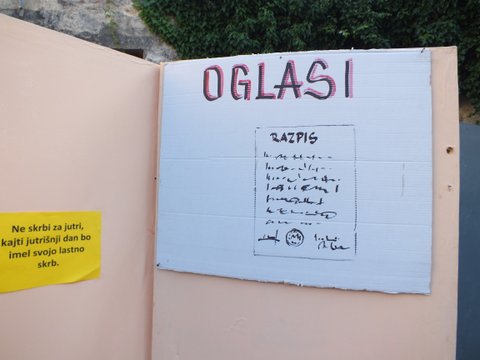 OGLASI
RAZPIS
Ne skrbi za jutri,
kajti jutrišnji dan bo
imel svojo lastno
skrb.